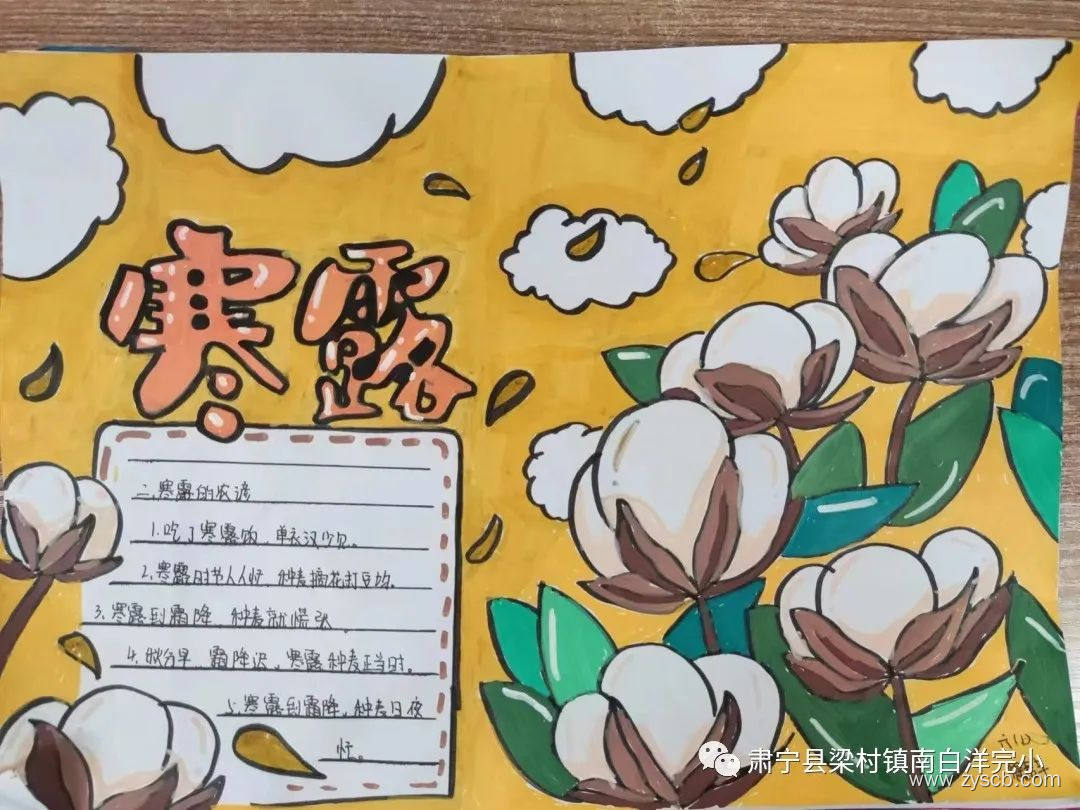 寒露
二.寒露的农谚
1.吃了寒露饭,单衣汉少见。
2.寒露时节人人忙,种麦摘花打豆场。
3.寒露到霜降,种麦就慌张。
4.秋分早、霜降迟,寒露种麦正当时。
5.寒露到霜降,种麦日夜
忙。
肃宁县梁村镇南白洋完小
www.zyscb.com